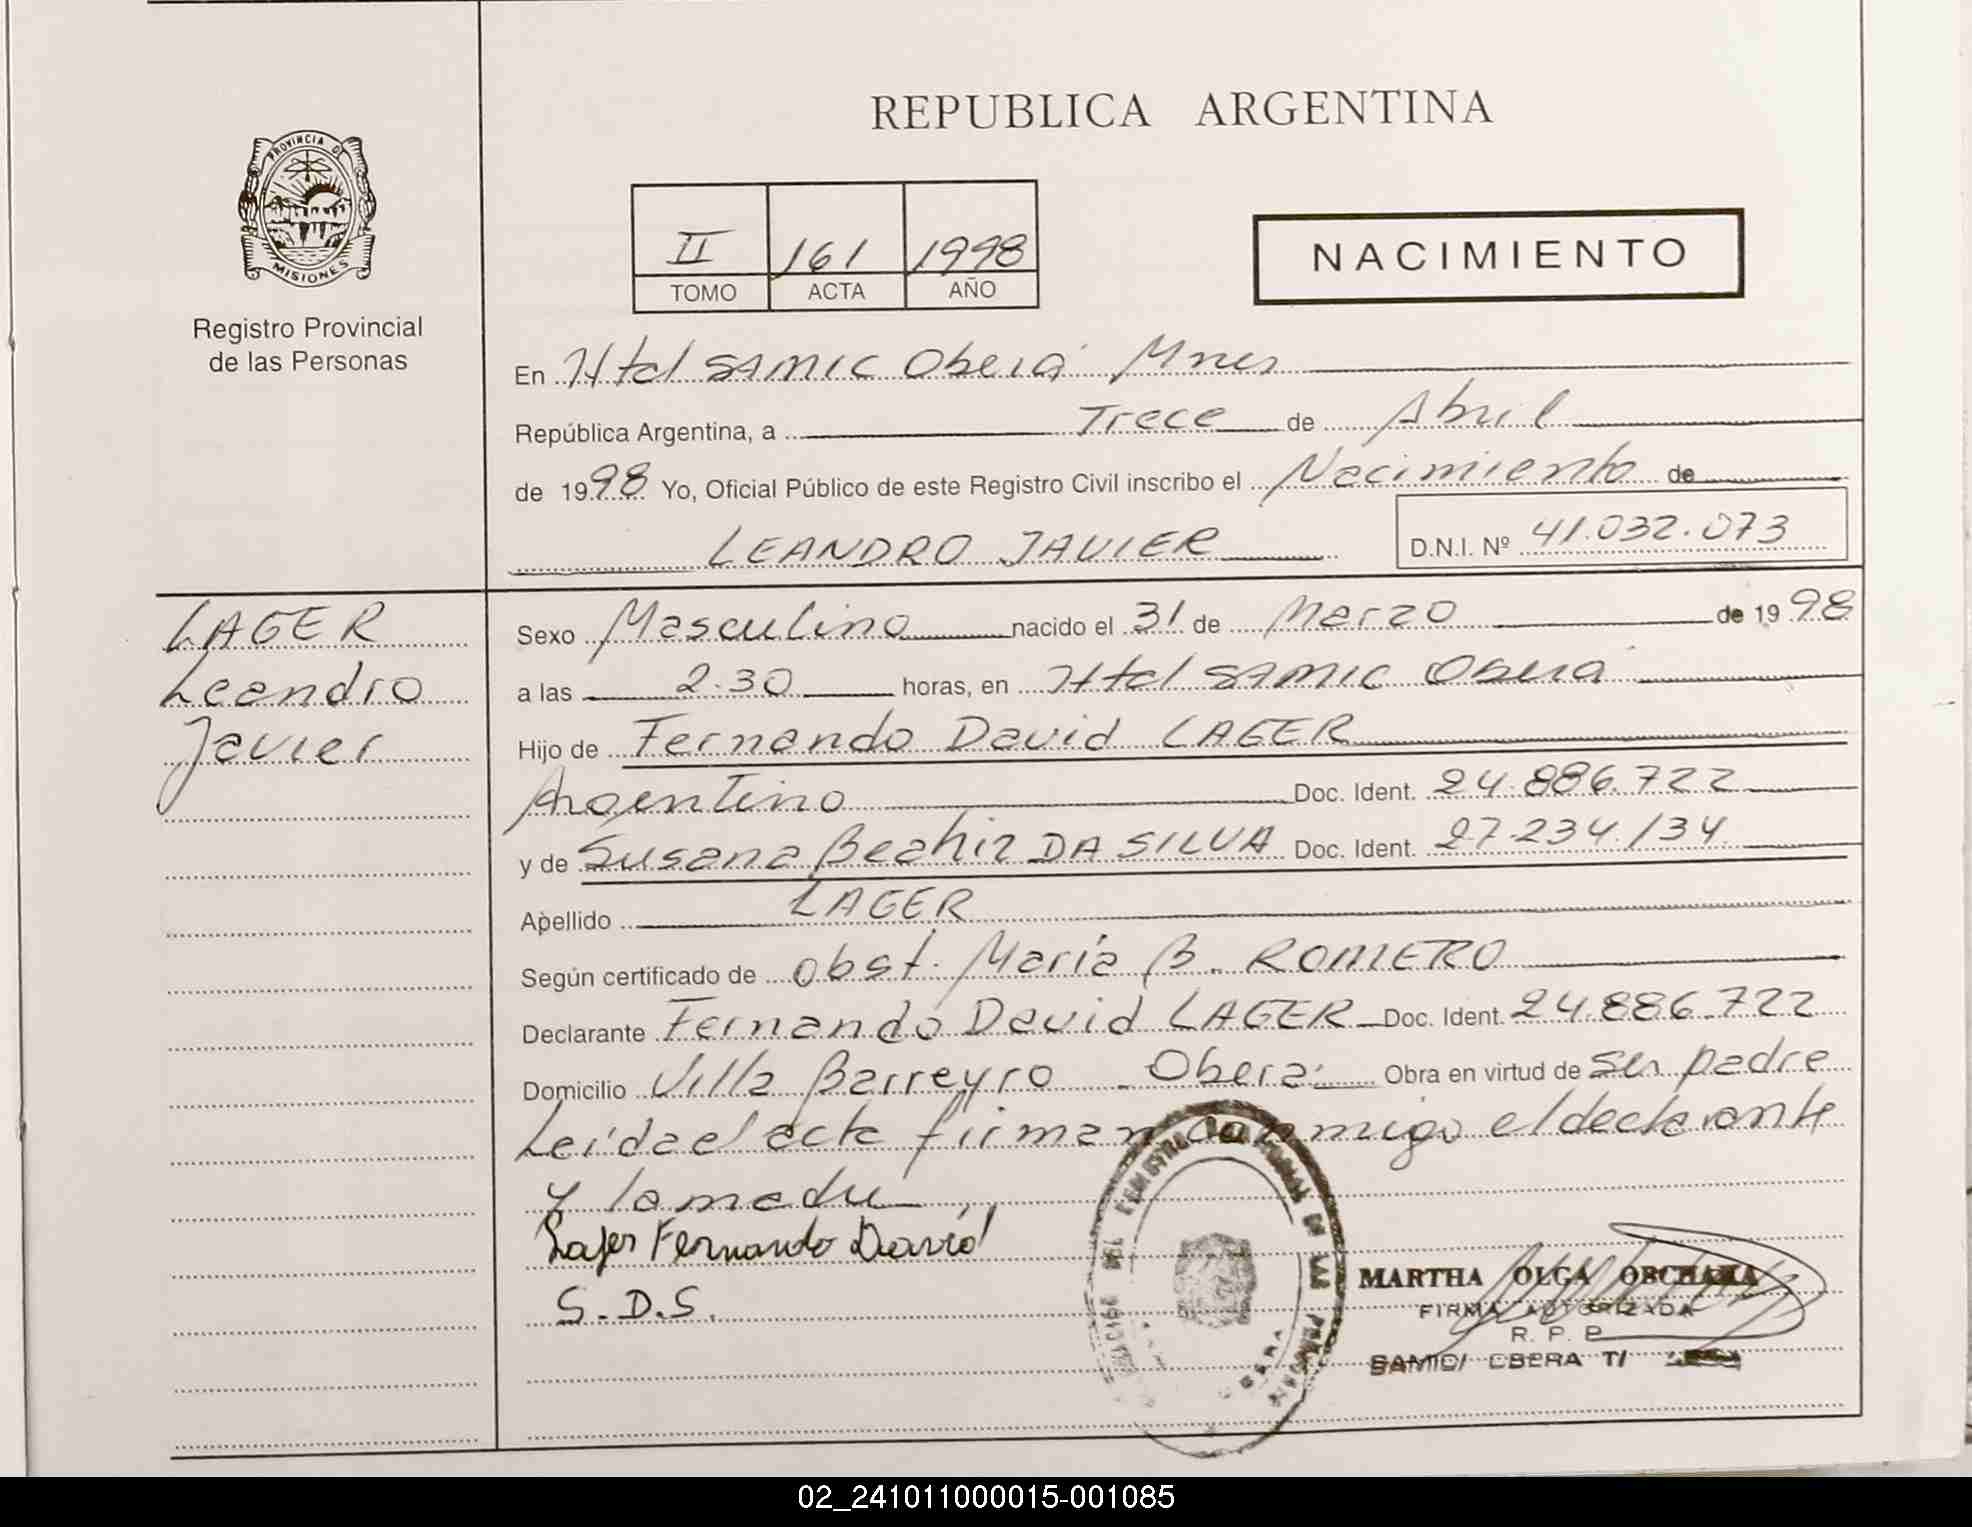 REPUBLICA ARGENTINA
PROVINCIA DE
MISIONES
Registro Provincial
de las Personas
II 161 1998
TOMO ACTA AÑO
NACIMIENTO
En Htal SAMIC Oberá Mnes
República Argentina, a Trece de Abril
de 1998 Yo, Oficial Público de este Registro Civil inscribo el Nacimiento de
LEANDRO JAVIER D.N.I. Nº 41.032.073
LAGER
Leandro
Javier
Sexo Masculino nacido el 31 de Marzo de 1998
a las 2.30 horas, en Htal SAMIC Oberá
Hijo de Fernando David LAGER
Argentino Doc. Ident. 24.886.722
y de Susana Beatriz DA SILVA Doc. Ident. 27.234.134
Apellido LAGER
Según certificado de obst. María B. ROMERO
Declarante Fernando David LAGER Doc. Ident. 24.886.722
Domicilio Villa Barreyro Oberá Obra en virtud de ser padre
Leída el acta firman conmigo el declarante
y la madre
Lager Fernando David
S.D.S.
MARTHA OLGA
FIRMA AUTORIZADA
R. P. P.
SAMIC/ OBERA T/
02_241011000015-001085